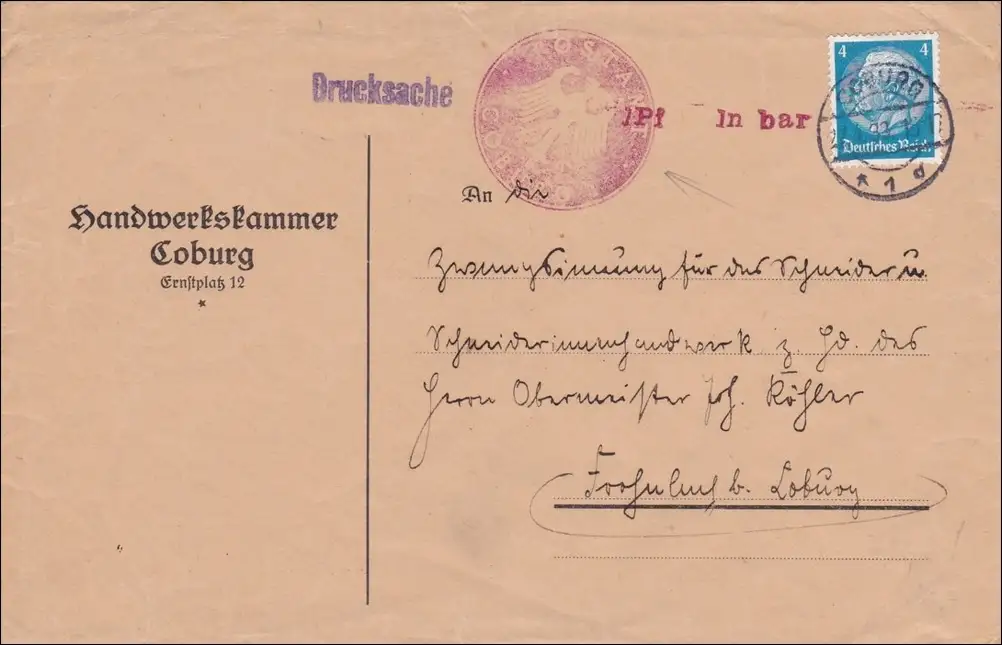 Drucksache
1Pf In bar
4 4
Deutsches Reich
COBURG
* 1 d
Handwerkskammer
Coburg
Ernstplatz 12
*
An die
Zwangsinnung für das Schneider u.
Schneiderinnenhandwerk z. Hd. des
Herrn Obermeister Joh. Köhler
Frohnlach b. Coburg